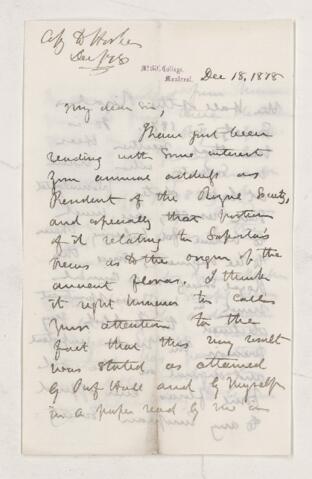 Dec 18/78
McGill College,
Montreal.
Dec 18, 1878
My dear Sir,
I have just been
reading with some interest
your annual address as
President of the Royal Society,
and especially that portion
of it relating to Saporta's
views as to the origin of the
ancient floras. I think
it right however to call
your attention to the
fact that this very result
was stated as attained
by Prof Hall and by myself
in a paper read by me in